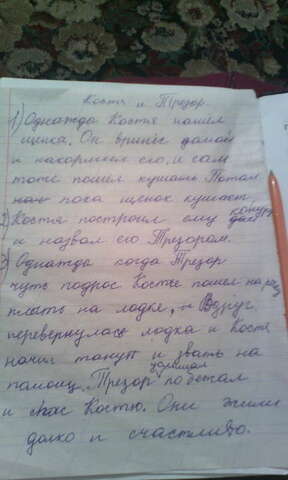 Костя и Трезор.
1) Однажды Костя нашел
щенка. Он принёс домой
и накормил его, и сам
тоже пошел кушать. Потом
пока щенок кушает
2) Костя построил ему конуру
и назвал его Трезором.
3) Однажды когда Трезор
чуть подрос Костя пошел на реку
плыть на лодке, и Вдруг
перевернулась лодка и Костя
начил тануть и звать на
помощ. Трезор услишал побежал
и спас Костю. Они жили
долко и счастливо.